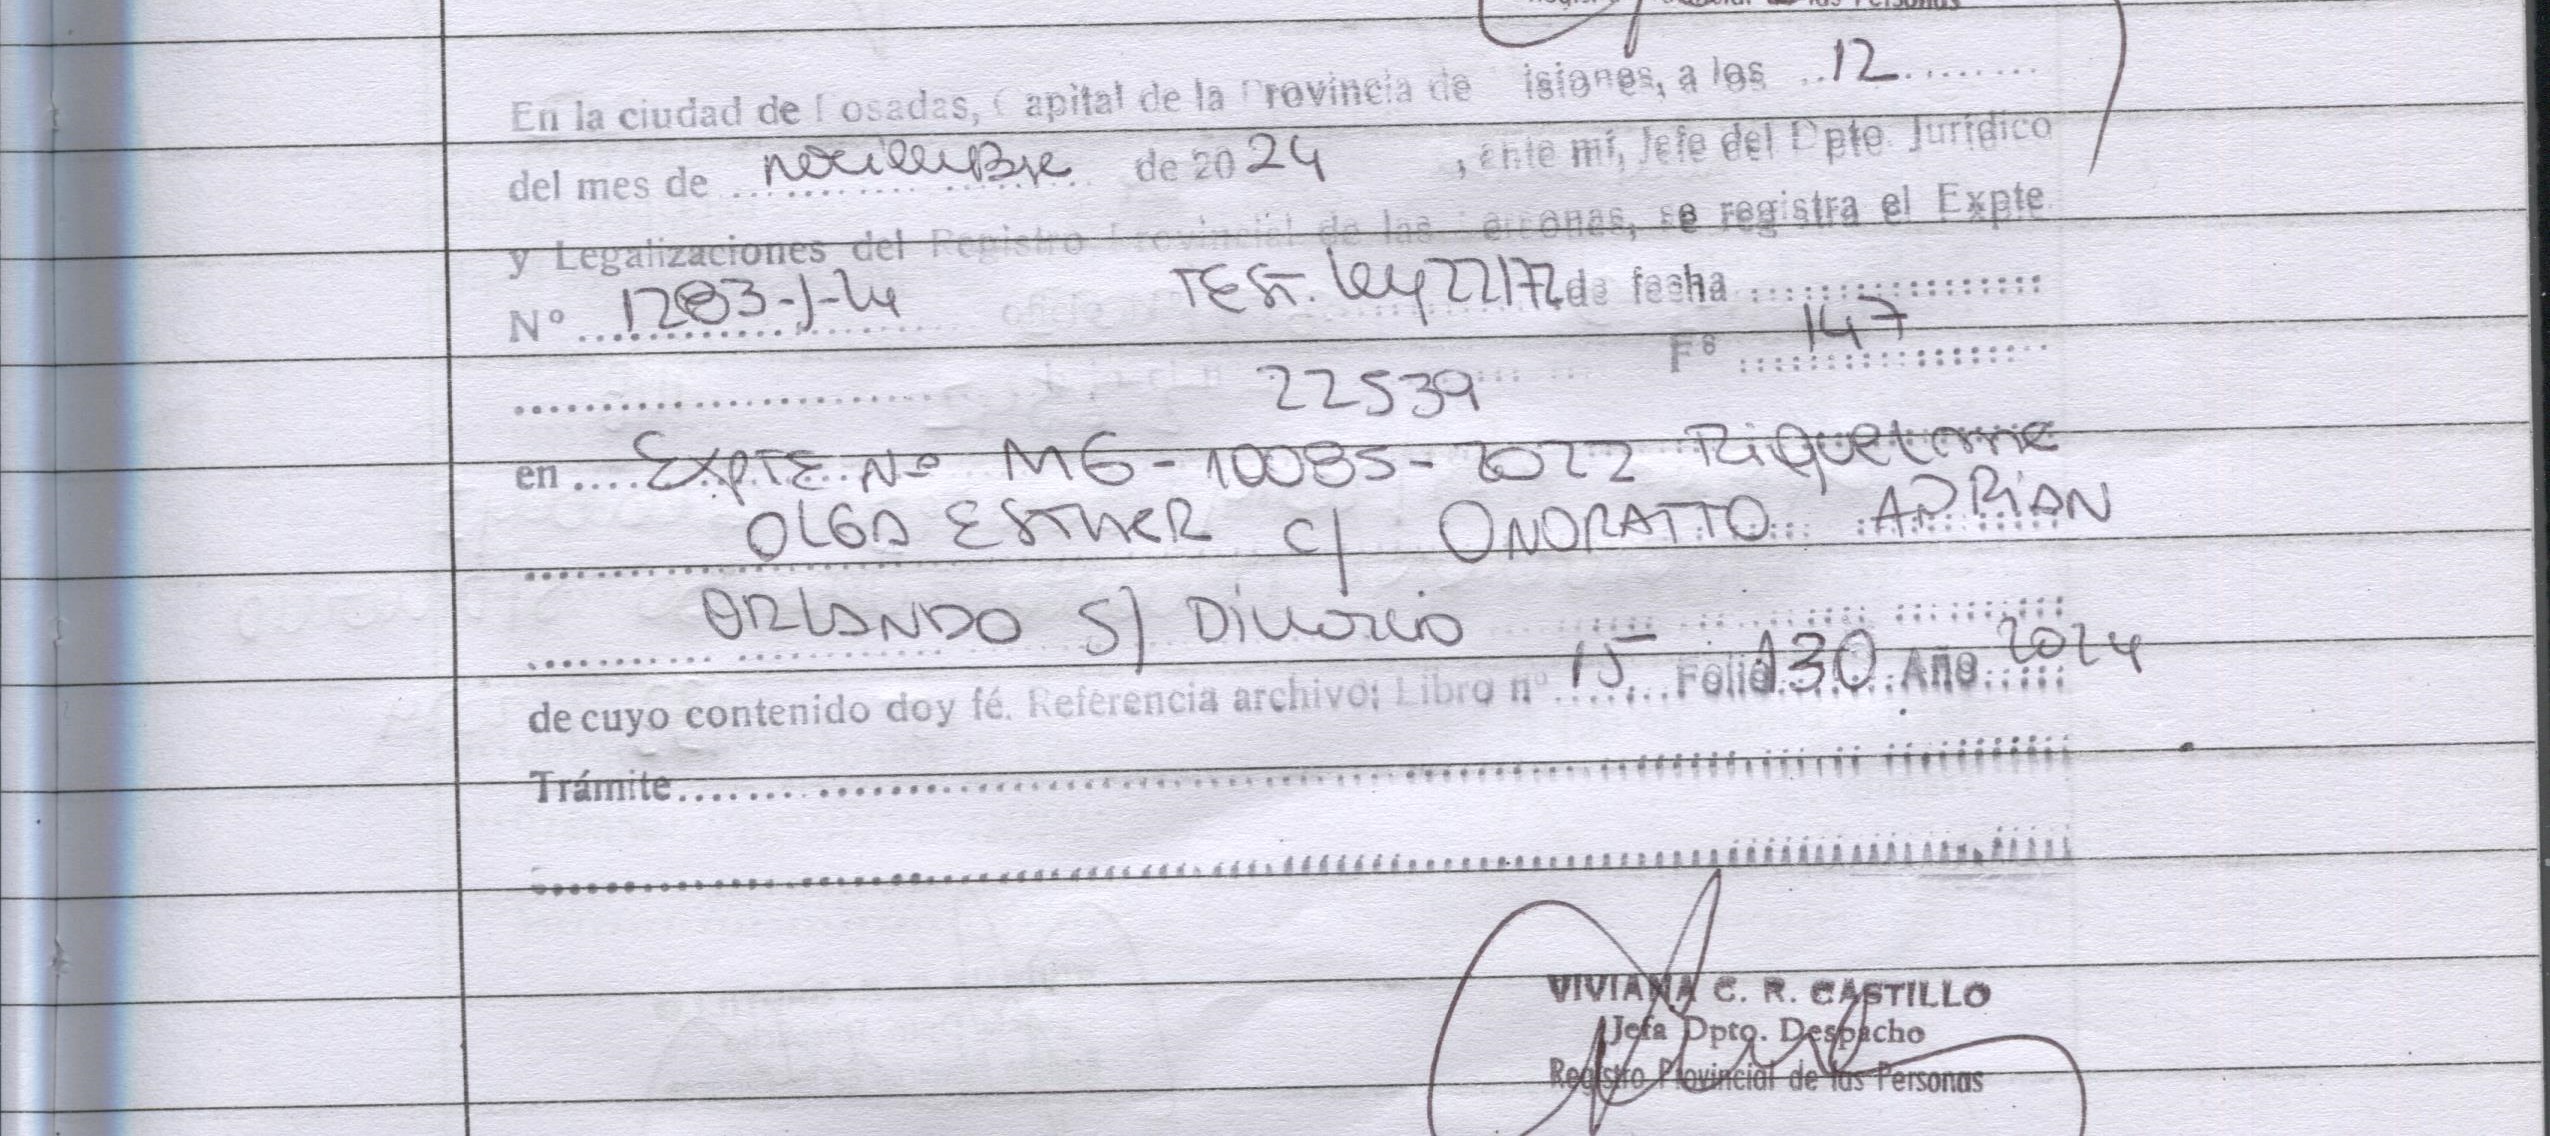 Registro Provincial de las Personas
En la ciudad de Posadas, Capital de la Provincia de Misiones, a los 12
del mes de noviembre de 2024, ante mí, Jefe del Dpto. Jurídico
y Legalizaciones del Registro Provincial de las Personas, se registra el Expte
Nº 1283-J-24 TEST. Ley 22172 de fecha
22539 Fº 147
en Expte Nº MG-10085-2022 Riquelme
OLGA ESTHER c/ ONORATTO ADRIAN
ORLANDO S/ Divorcio
de cuyo contenido doy fé. Referencia archivo: Libro nº 15 Folio 130 Año 2024
Trámite
VIVIANA C. R. CASTILLO
Jefa Dpto. Despacho
Registro Provincial de las Personas